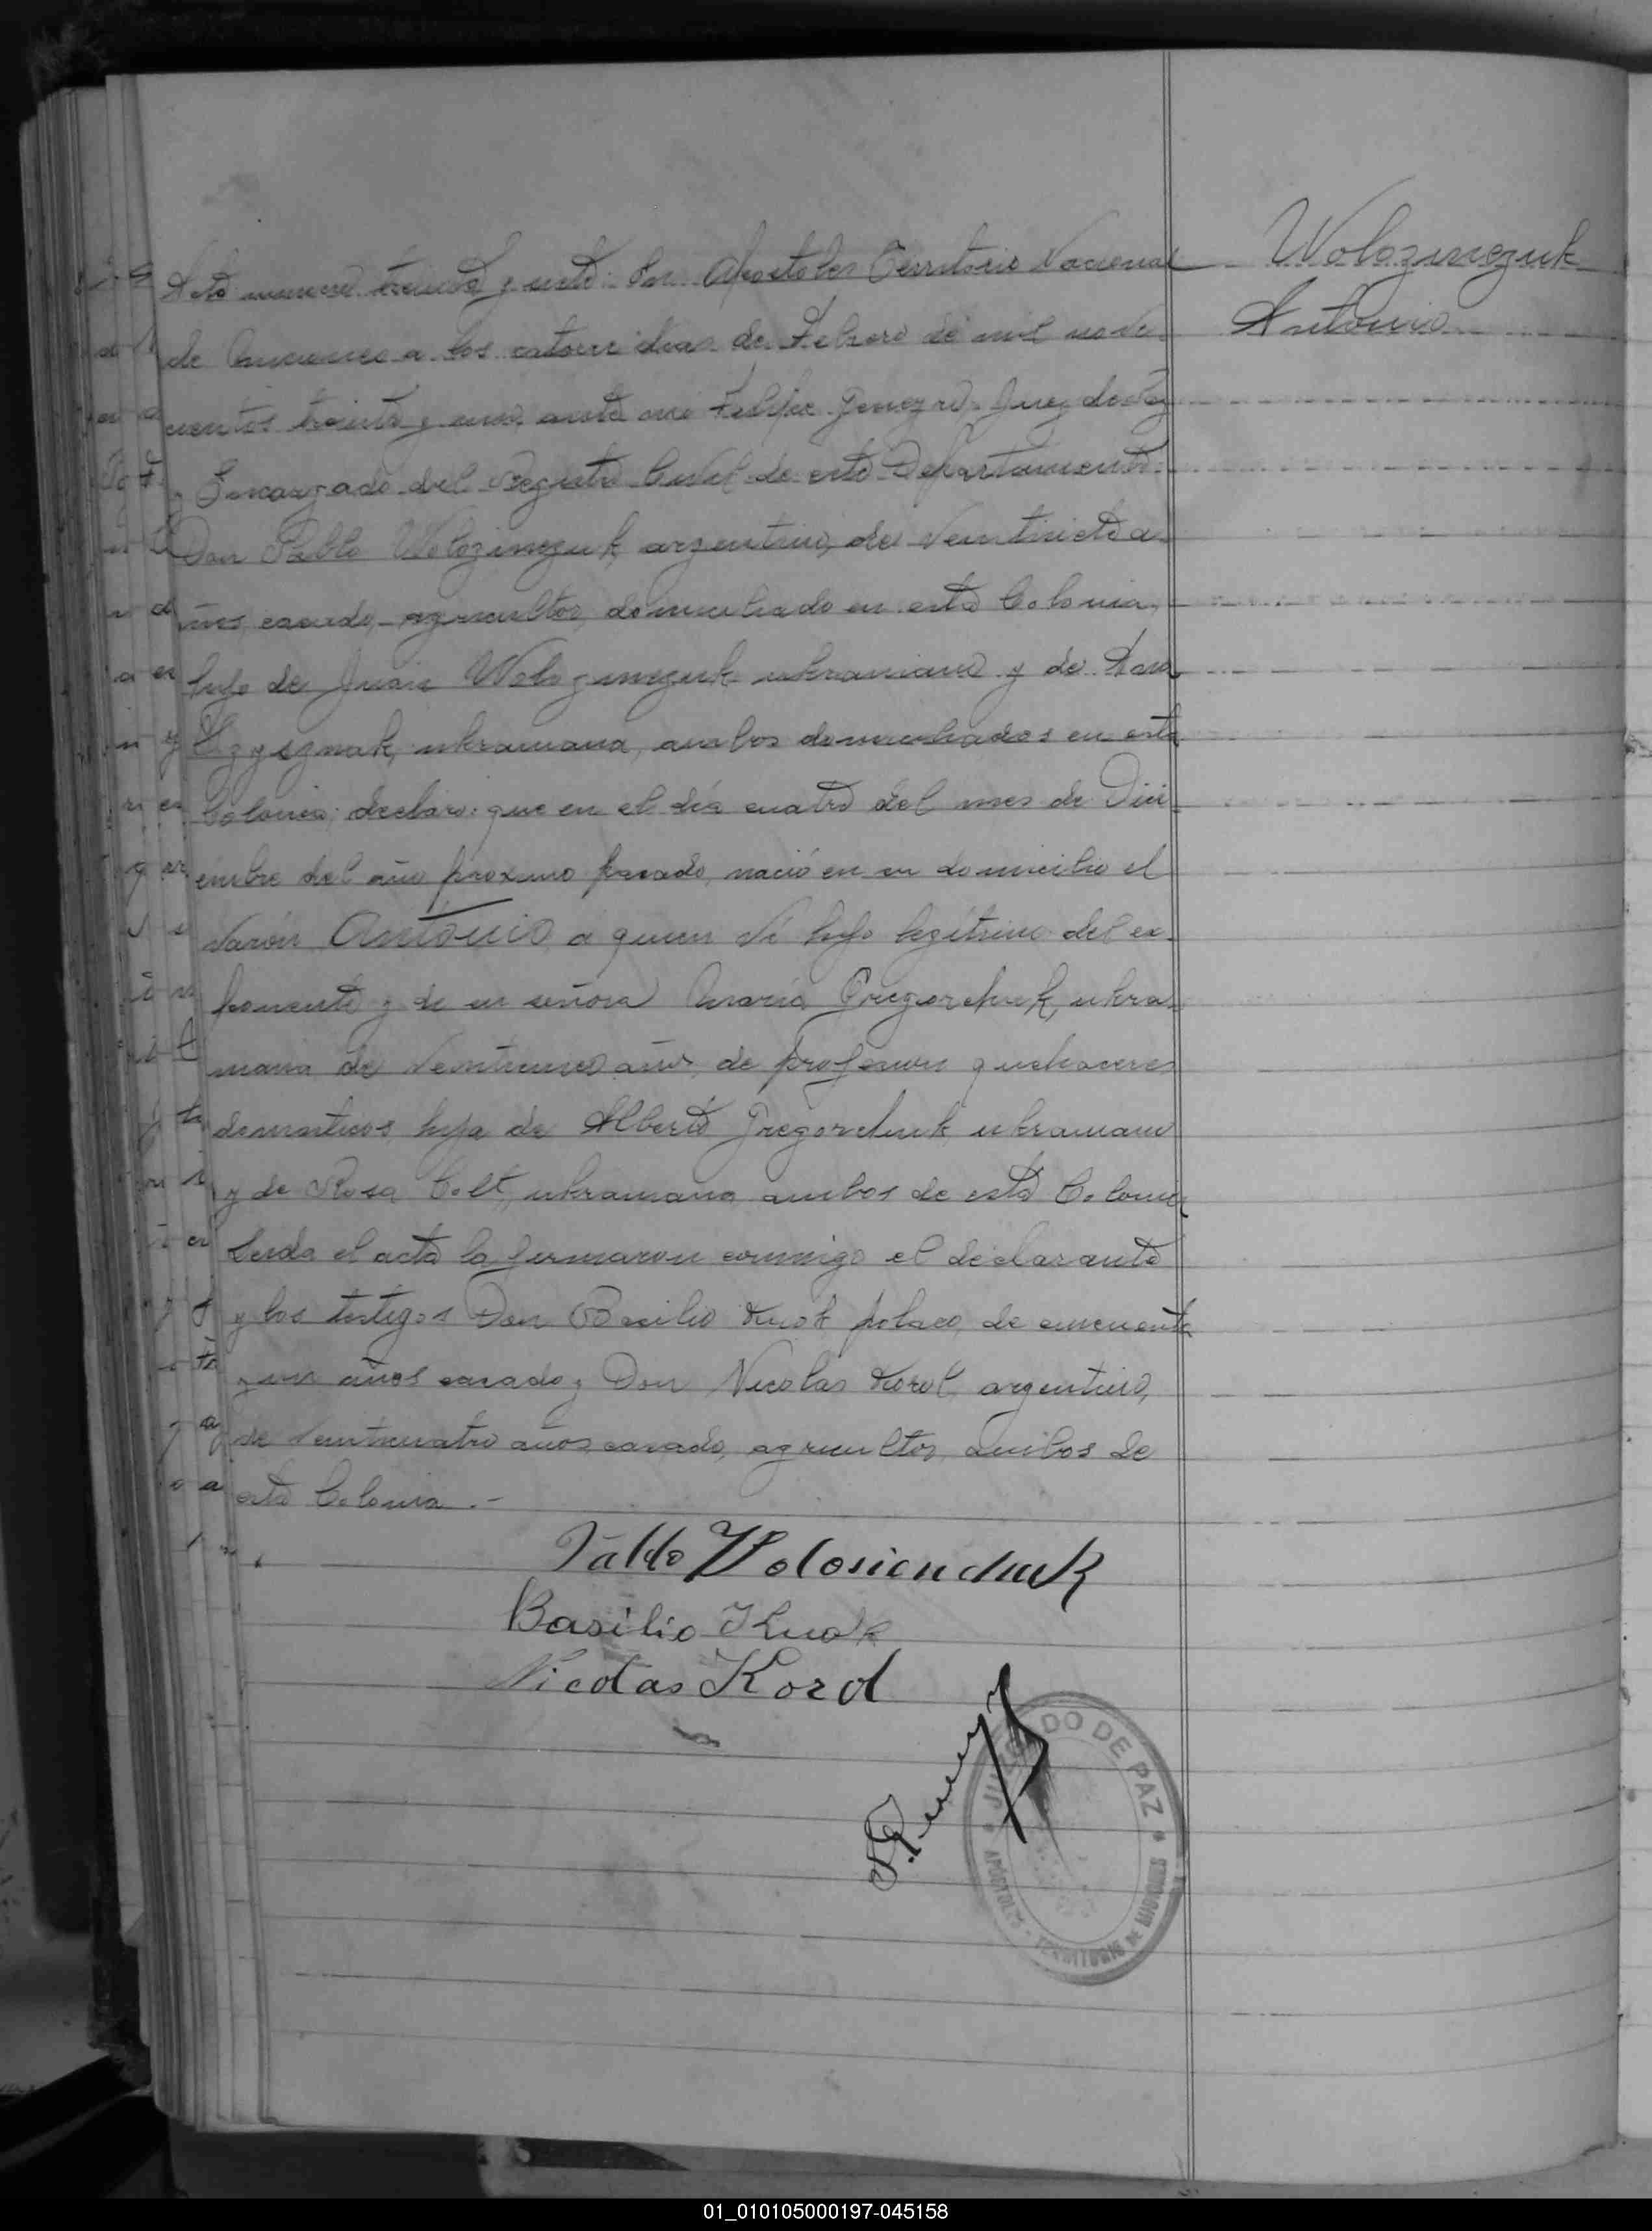 Wolozinczuk
Antonio
Acta numero treinta y siete: En Apostoles Territorio Nacional
de Misiones a los catorce dias de Febrero de mil nove-
cientos treinta y uno, ante mi Felipe Juez de Paz
y Encargado del Registro Civil de este Departamento.
Don Pablo Wolozinczuk, argentino, de veintisiete a-
ños, casado, agricultor, domiciliado en esta Colonia,
hijo de Juan Wolozinczuk ukraniano y de Ana
ukraniana, ambos domiciliados en esta
Colonia; declaro: que en el día cuatro del mes de Dici-
embre del año proximo pasado, nació en su domicilio el
varón Antonio, a quien ví hijo legítimo del ex-
ponente y de su señora María Gregorchuk, ukra-
niana de años, de profesion quehaceres
domesticos, hija de Alberto Gregorchuk, ukraniano
y de Rosa Colt, ukraniana, ambos de esta Colonia
Leida el acta la firmaron conmigo el declarante
y los testigos Don Basilio Kuok polaco, de cincuenta
y un años casado y Don Nicolas Korol, argentino,
de veinticuatro años, casado, agricultor, ambos de
esta Colonia.-
Pablo Wolosienchuk
Basilio Kuok
Nicolas Korol
JUZGADO DE PAZ
APOSTOLES - TERRITORIO DE MISIONES
01_010105000197-045158